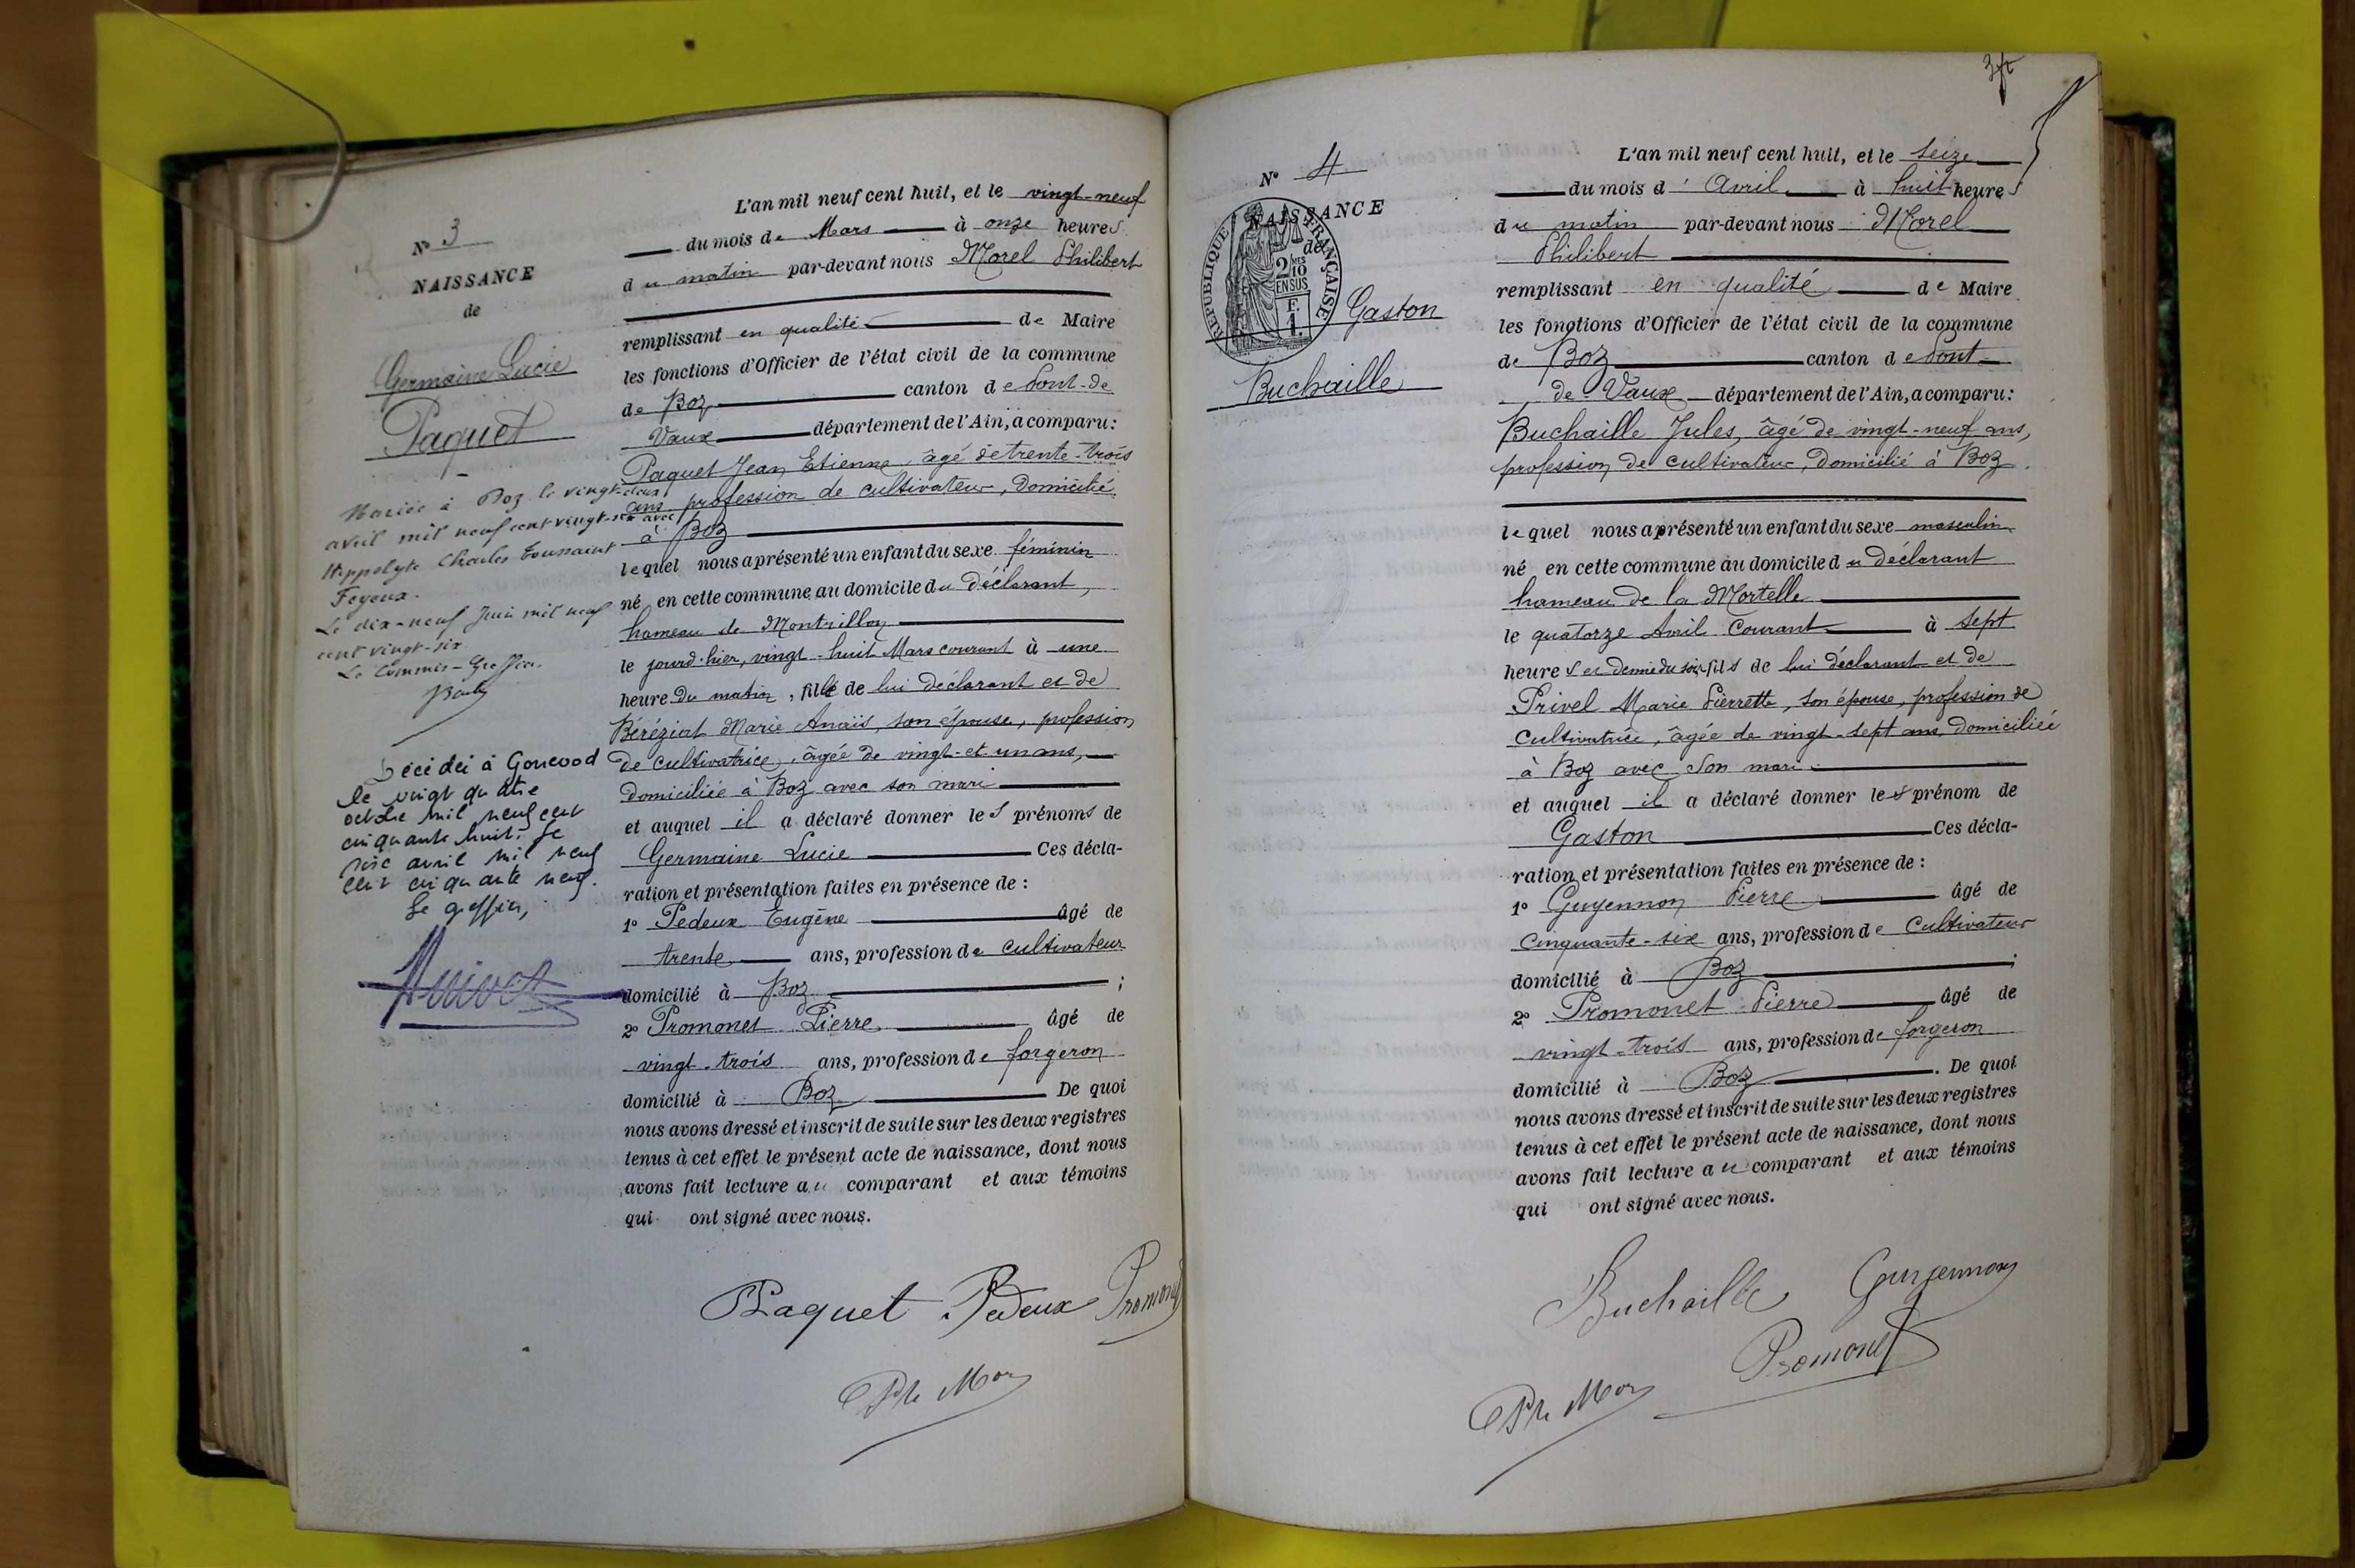 N° 3
NAISSANCE
de
Germaine Lucie
Paquet
Mariée à Boz le vingt-deux
avril mil neuf cent vingt-six avec
Hippolyte Charles Toussaint
Feyeux.
Le dix-neuf Juin mil neuf
cent vingt-six
Le Commis-Greffier.
Décidéi à Gorrevod
le vingt quatre
octobre mil neuf cent
cinquante huit. Le
avril mil neuf
cent cinquante neuf.
Le greffier,
L'an mil neuf cent huit, et le vingt-neuf
du mois de Mars à onze heures
du matin par-devant nous Morel Philibert
remplissant en qualité de Maire
les fonctions d'Officier de l'état civil de la commune
de Boz canton de Pont-de
Vaux département de l'Ain, a comparu:
Paquet Jean Etienne, âgé de trente-trois
ans profession de cultivateur, domicilié
à Boz
lequel nous a présenté un enfant du sexe féminin
né en cette commune au domicile du déclarant,
hameau de Montrillon
le jourd'hier, vingt-huit Mars courant à une
heure du matin, fille de lui déclarant et de
Béréziat Marie Anaïs, son épouse, profession
de cultivatrice, âgée de vingt-et-un ans,
domiciliée à Boz avec son mari
et auquel il a déclaré donner les prénoms de
Germaine Lucie Ces décla-
ration et présentation faites en présence de :
1° Pedeux Eugène âgé de
trente ans, profession de cultivateur
domicilié à Boz ;
2° Promonet Pierre âgé de
vingt-trois ans, profession de forgeron
domicilié à Boz De quoi
nous avons dressé et inscrit de suite sur les deux registres
tenus à cet effet le présent acte de naissance, dont nous
avons fait lecture au comparant et aux témoins
qui ont signé avec nous.
Paquet Pedeux Promonet
Ph Mor
N° 4
NAISSANCE
de
REPUBLIQUE FRANÇAISE
2/10 MES
EN SUS
F.
1.
Gaston
Buchaille
L'an mil neuf cent huit, et le seize
du mois d'Avril à huit heures
du matin par-devant nous Morel
Philibert
remplissant en qualité de Maire
les fonctions d'Officier de l'état civil de la commune
de Boz canton de Pont-
de Vaux département de l'Ain, a comparu:
Buchaille Jules, âgé de vingt-neuf ans,
profession de cultivateur, domicilié à Boz.
lequel nous a présenté un enfant du sexe masculin
né en cette commune au domicile du déclarant
hameau de la Mortelle
le quatorze Avril courant à sept
heures et demie du soir fils de lui déclarant et de
Privel Marie Pierrette, son épouse, profession de
cultivatrice, âgée de vingt-sept ans, domiciliée
à Boz avec son mari
et auquel il a déclaré donner les prénom de
Gaston Ces décla-
ration et présentation faites en présence de :
1° Guyennon Pierre âgé de
cinquante-six ans, profession de cultivateur
domicilié à Boz ;
2° Promonet Pierre âgé de
vingt-trois ans, profession de forgeron
domicilié à Boz . De quoi
nous avons dressé et inscrit de suite sur les deux registres
tenus à cet effet le présent acte de naissance, dont nous
avons fait lecture au comparant et aux témoins
qui ont signé avec nous.
Buchaille Guyennon
Promonet
Ph Mor